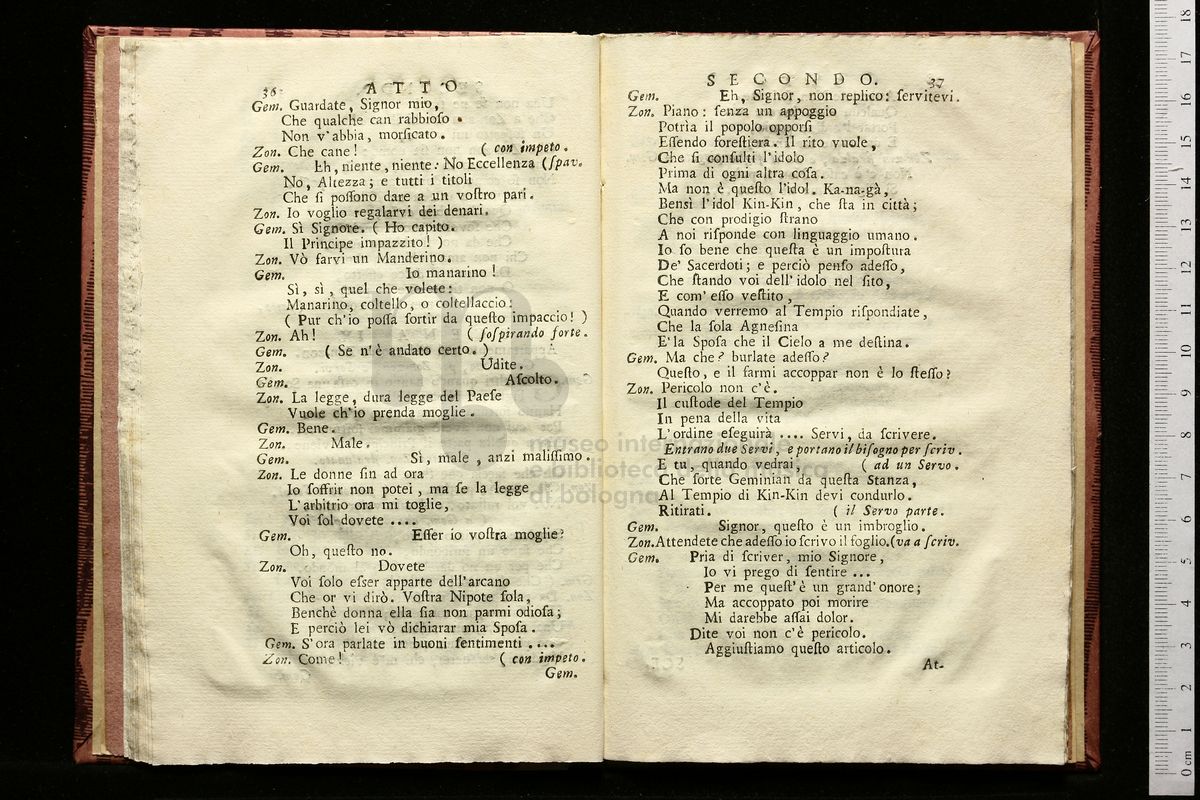 36 ATTO
Gem. Guardate, Signor mio,
Che qualche can rabbioſo
Non v'abbia, morſicato.
Zon. Che cane! ( con impeto.
Gem. Eh, niente, niente: No Eccellenza (ſpav.
No, Altezza; e tutti i titoli
Che ſi poſſono dare a un voſtro pari.
Zon. Io voglio regalarvi dei denari.
Gem. Sì Signore. ( Ho capito.
Il Principe impazzito! )
Zon. Vò farvi un Manderino.
Gem. Io manarino!
Sì, sì, quel che volete:
Manarino, coltello, o coltellaccio:
( Pur ch'io poſſa ſortir da queſto impaccio! )
Zon. Ah! ( ſoſpirando forte.
Gem. ( Se n'è andato certo. )
Zon. Udite.
Gem. Aſcolto.
Zon. La legge, dura legge del Paeſe
Vuole ch'io prenda moglie.
Gem. Bene.
Zon. Male.
Gem. Sì, male, anzi maliſſimo.
Zon. Le donne ſin ad ora
Io ſoffrir non potei, ma ſe la legge
L'arbitrio ora mi toglie,
Voi ſol dovete ....
Gem. Eſſer io voſtra moglie?
Oh, queſto no.
Zon. Dovete
Voi ſolo eſser apparte dell'arcano
Che or vi dirò. Voſtra Nipote ſola,
Benchè donna ella ſia non parmi odioſa;
E perciò lei vò dichiarar mia Spoſa.
Gem. S'ora parlate in buoni ſentimenti ....
Zon. Come! ( con impeto.
Gem.
SECONDO. 37
Gem. Eh, Signor, non replico: ſervitevi.
Zon. Piano: ſenza un appoggio
Potria il popolo opporſi
Eſſendo foreſtiera. Il rito vuole,
Che ſi conſulti l'idolo
Prima di ogni altra coſa.
Ma non è queſto l'idol. Ka-na-gà,
Bensì l'idol Kin-Kin, che ſta in città;
Che con prodigio ſtrano
A noi riſponde con linguaggio umano.
Io ſo bene che queſta è un impoſtura
De' Sacerdoti; e perciò penſo adeſſo,
Che ſtando voi dell' idolo nel ſito,
E com' eſſo veſtito,
Quando verremo al Tempio riſpondiate,
Che la ſola Agneſina
E' la Spoſa che il Cielo a me deſtina.
Gem. Ma che? burlate adeſſo?
Queſto, e il farmi accoppar non è lo ſteſſo?
Zon. Pericolo non c'è.
Il cuſtode del Tempio
In pena della vita
L'ordine eſeguirà .... Servi, da ſcrivere.
Entrano due Servi, e portano il biſogno per ſcriv.
E tu, quando vedrai, ( ad un Servo.
Che ſorte Geminian da queſta Stanza,
Al Tempio di Kin-Kin devi condurlo.
Ritirati. ( il Servo parte.
Gem. Signor, queſto è un imbroglio.
Zon. Attendete che adeſſo io ſcrivo il foglio. (va a ſcriv.
Gem. Pria di ſcriver, mio Signore,
Io vi prego di ſentire ...
Per me queſt' è un grand' onore;
Ma accoppato poi morire
Mi darebbe aſſai dolor.
Dite voi non c'è pericolo.
Aggiuſtiamo queſto articolo.
At-
museo internazionale
e biblioteca della musica
di bologna
0 cm 1 2 3 4 5 6 7 8 9 10 11 12 13 14 15 16 17 18